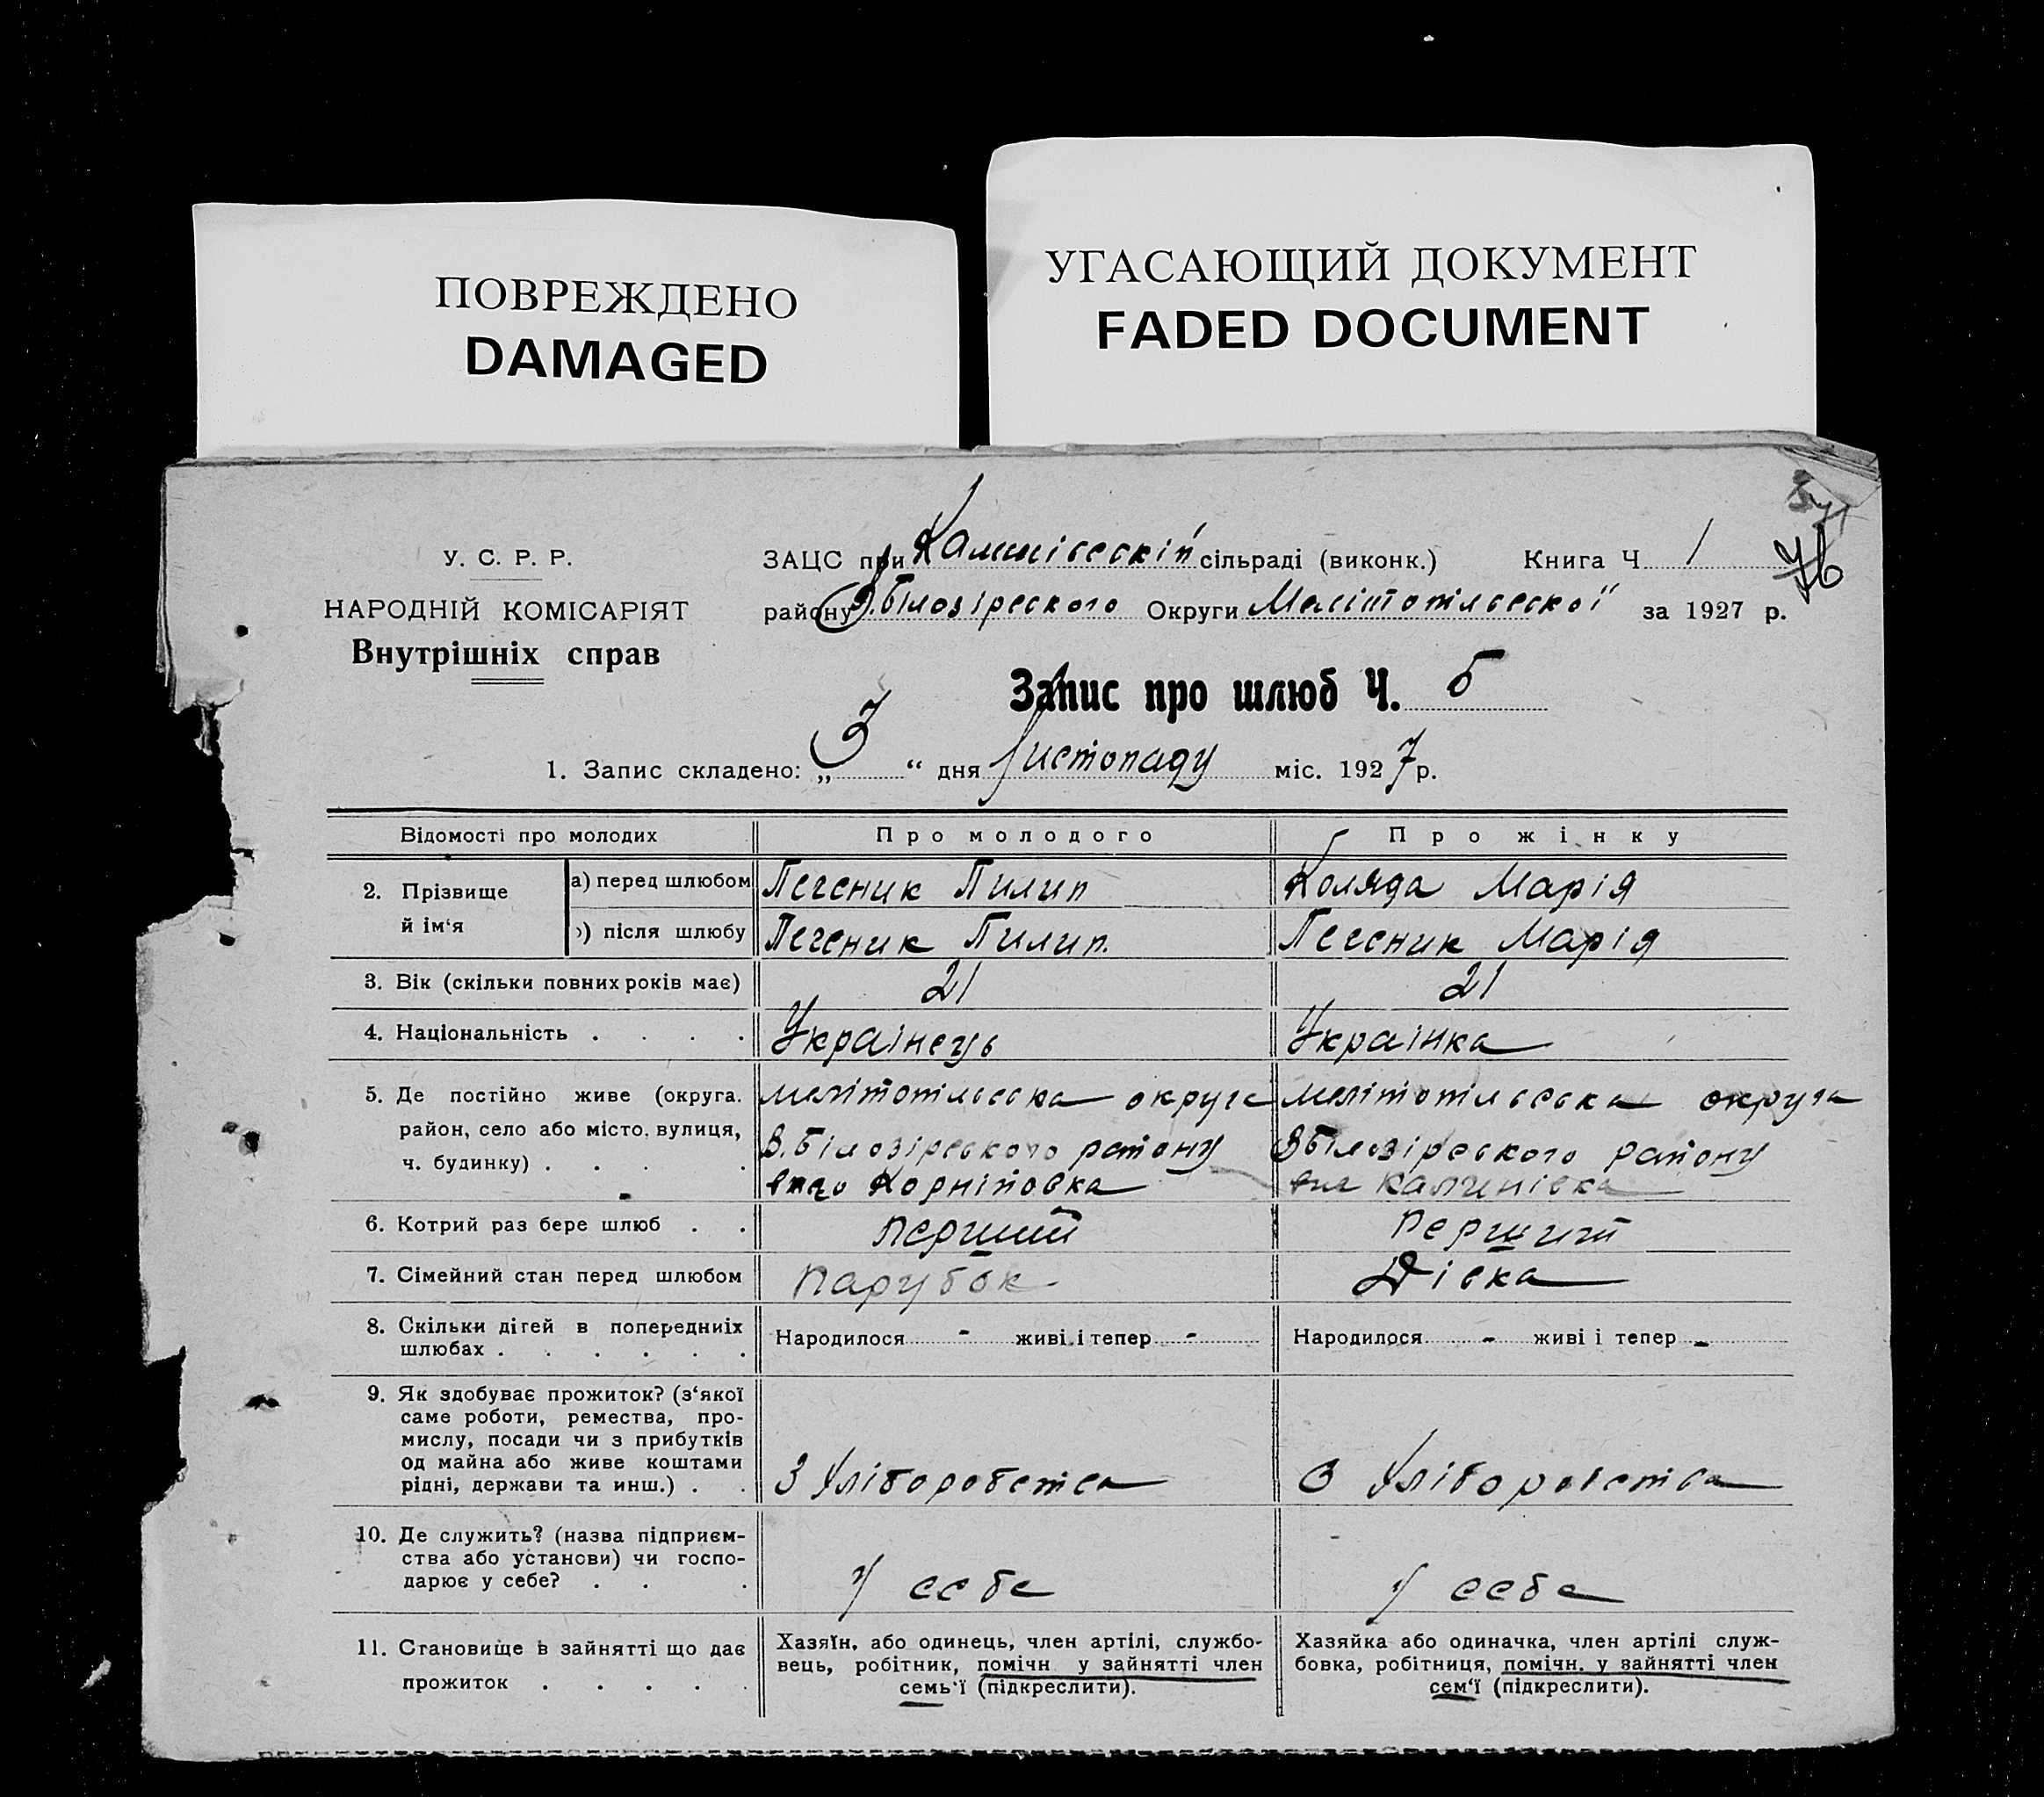 ПОВРЕЖДЕНО
DAMAGED
УГАСАЮЩИЙ ДОКУМЕНТ
FADED DOCUMENT
76
У. С. Р. Р.
НАРОДНІЙ КОМІСАРІЯТ
Внутрішніх справ
ЗАЦС при Калинівській сільраді (виконк.) Книга Ч. 1
району В.Білозірського Округи Мелітопільської за 1927 р.
Запис про шлюб Ч. 5
1. Запис складено: „ 3 “ дня Листопаду міс. 1927 р.
Відомості про молодих Про молодого Про жінку
2. Прізвище й ім‘я а) перед шлюбом Печеник Пилип Коляда Марія
) після шлюбу Печеник Пилип. Печеник Марія
3. Вік (скільки повних років має) 21 21
4. Національність . . . . Українець Українка
5. Де постійно живе (округа. мелітопільська округа мелітопільська округа
район, село або місто, вулиця, В.Білозірського району В Білозірського району
ч. будинку) . . . . Корніївка Калинівка
6. Котрий раз бере шлюб . . перший перший
7. Сімейний стан перед шлюбом парубок Дівка
8. Скільки дітей в попередниіх Народилося - живі і тепер - Народилося - живі і тепер -
шлюбах . . . . . .
9. Як здобуває прожиток? (з‘якої
саме роботи, ремества, про-
мислу, посади чи з прибутків
од майна або живе коштами
рідні, держави та инш.) . . З Хліборобства З Хліборобства
10. Де служить? (назва підприєм-
ства або установи) чи госпо-
дарює у себе? . . . У себе У себе
11. Становище в зайнятті що дає Хазяїн, або одинець, член артілі, службо- Хазяйка або одиначка, член артілі служ-
вець, робітник, помічн у зайнятті член бовка, робітниця, помічн. у зайнятті член
прожиток . . . . . семь‘ї (підкреслити). сем‘ї (підкреслити).